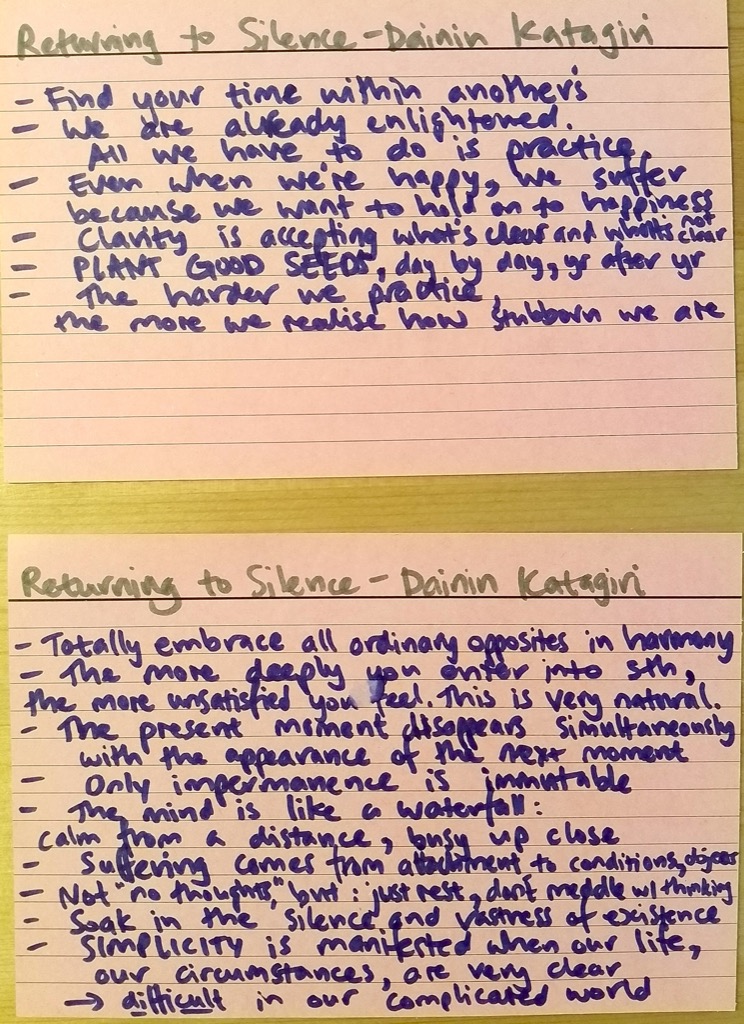 Returning to Silence - Dainin Katagiri
- Find your time within another's
- We are already enlightened.
All we have to do is practice.
- Even when we're happy, we suffer
because we want to hold on to happiness
- Clarity is accepting what's clear and what's not clear
- PLANT GOOD SEEDS, day by day, yr after yr
- The harder we practice,
the more we realise how stubborn we are
Returning to Silence - Dainin Katagiri
- Totally embrace all ordinary opposites in harmony
- The more deeply you enter into sth,
the more unsatisfied you feel. This is very natural.
- The present moment disappears simultaneously
with the appearance of the next moment
- Only impermanence is immutable
- The mind is like a waterfall:
calm from a distance, busy up close
- Suffering comes from attachment to conditions, objects
- Not "no thoughts," but: just rest, don't meddle w/ thinking
- Soak in the silence and vastness of existence
- SIMPLICITY is manifested when our life,
our circumstances, are very clear
→ difficult in our complicated world